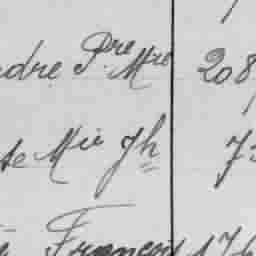 dre Pre Mie 208
te Mie Jh 73
François 176